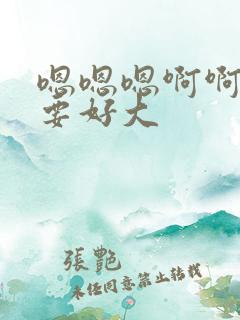 嗯嗯嗯啊啊
要好大
張艷
未经同意禁止转载